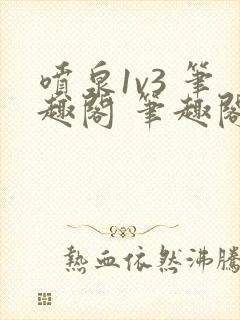 噴泉1v3 筆
趣閣 筆趣閣
熱血依然沸騰